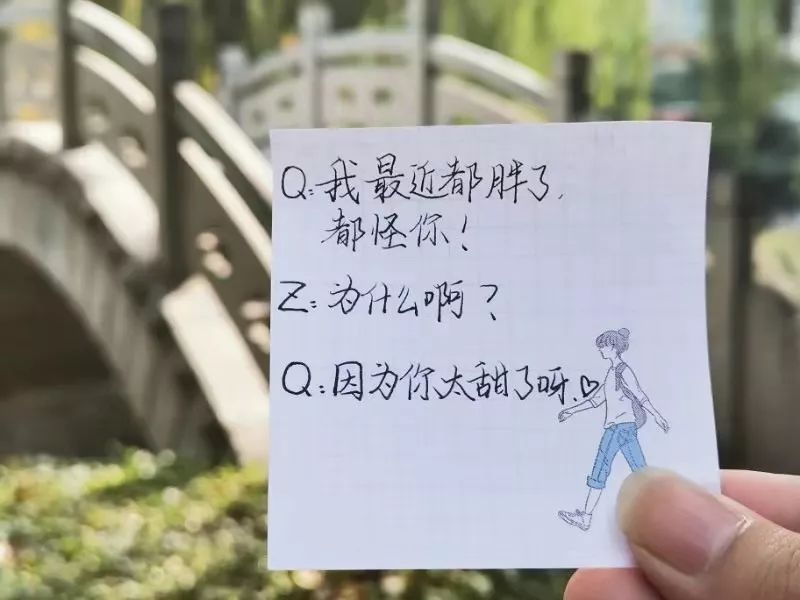 Q:我最近都胖了,
都怪你!
Z:为什么啊?
Q:因为你太甜了呀.♡